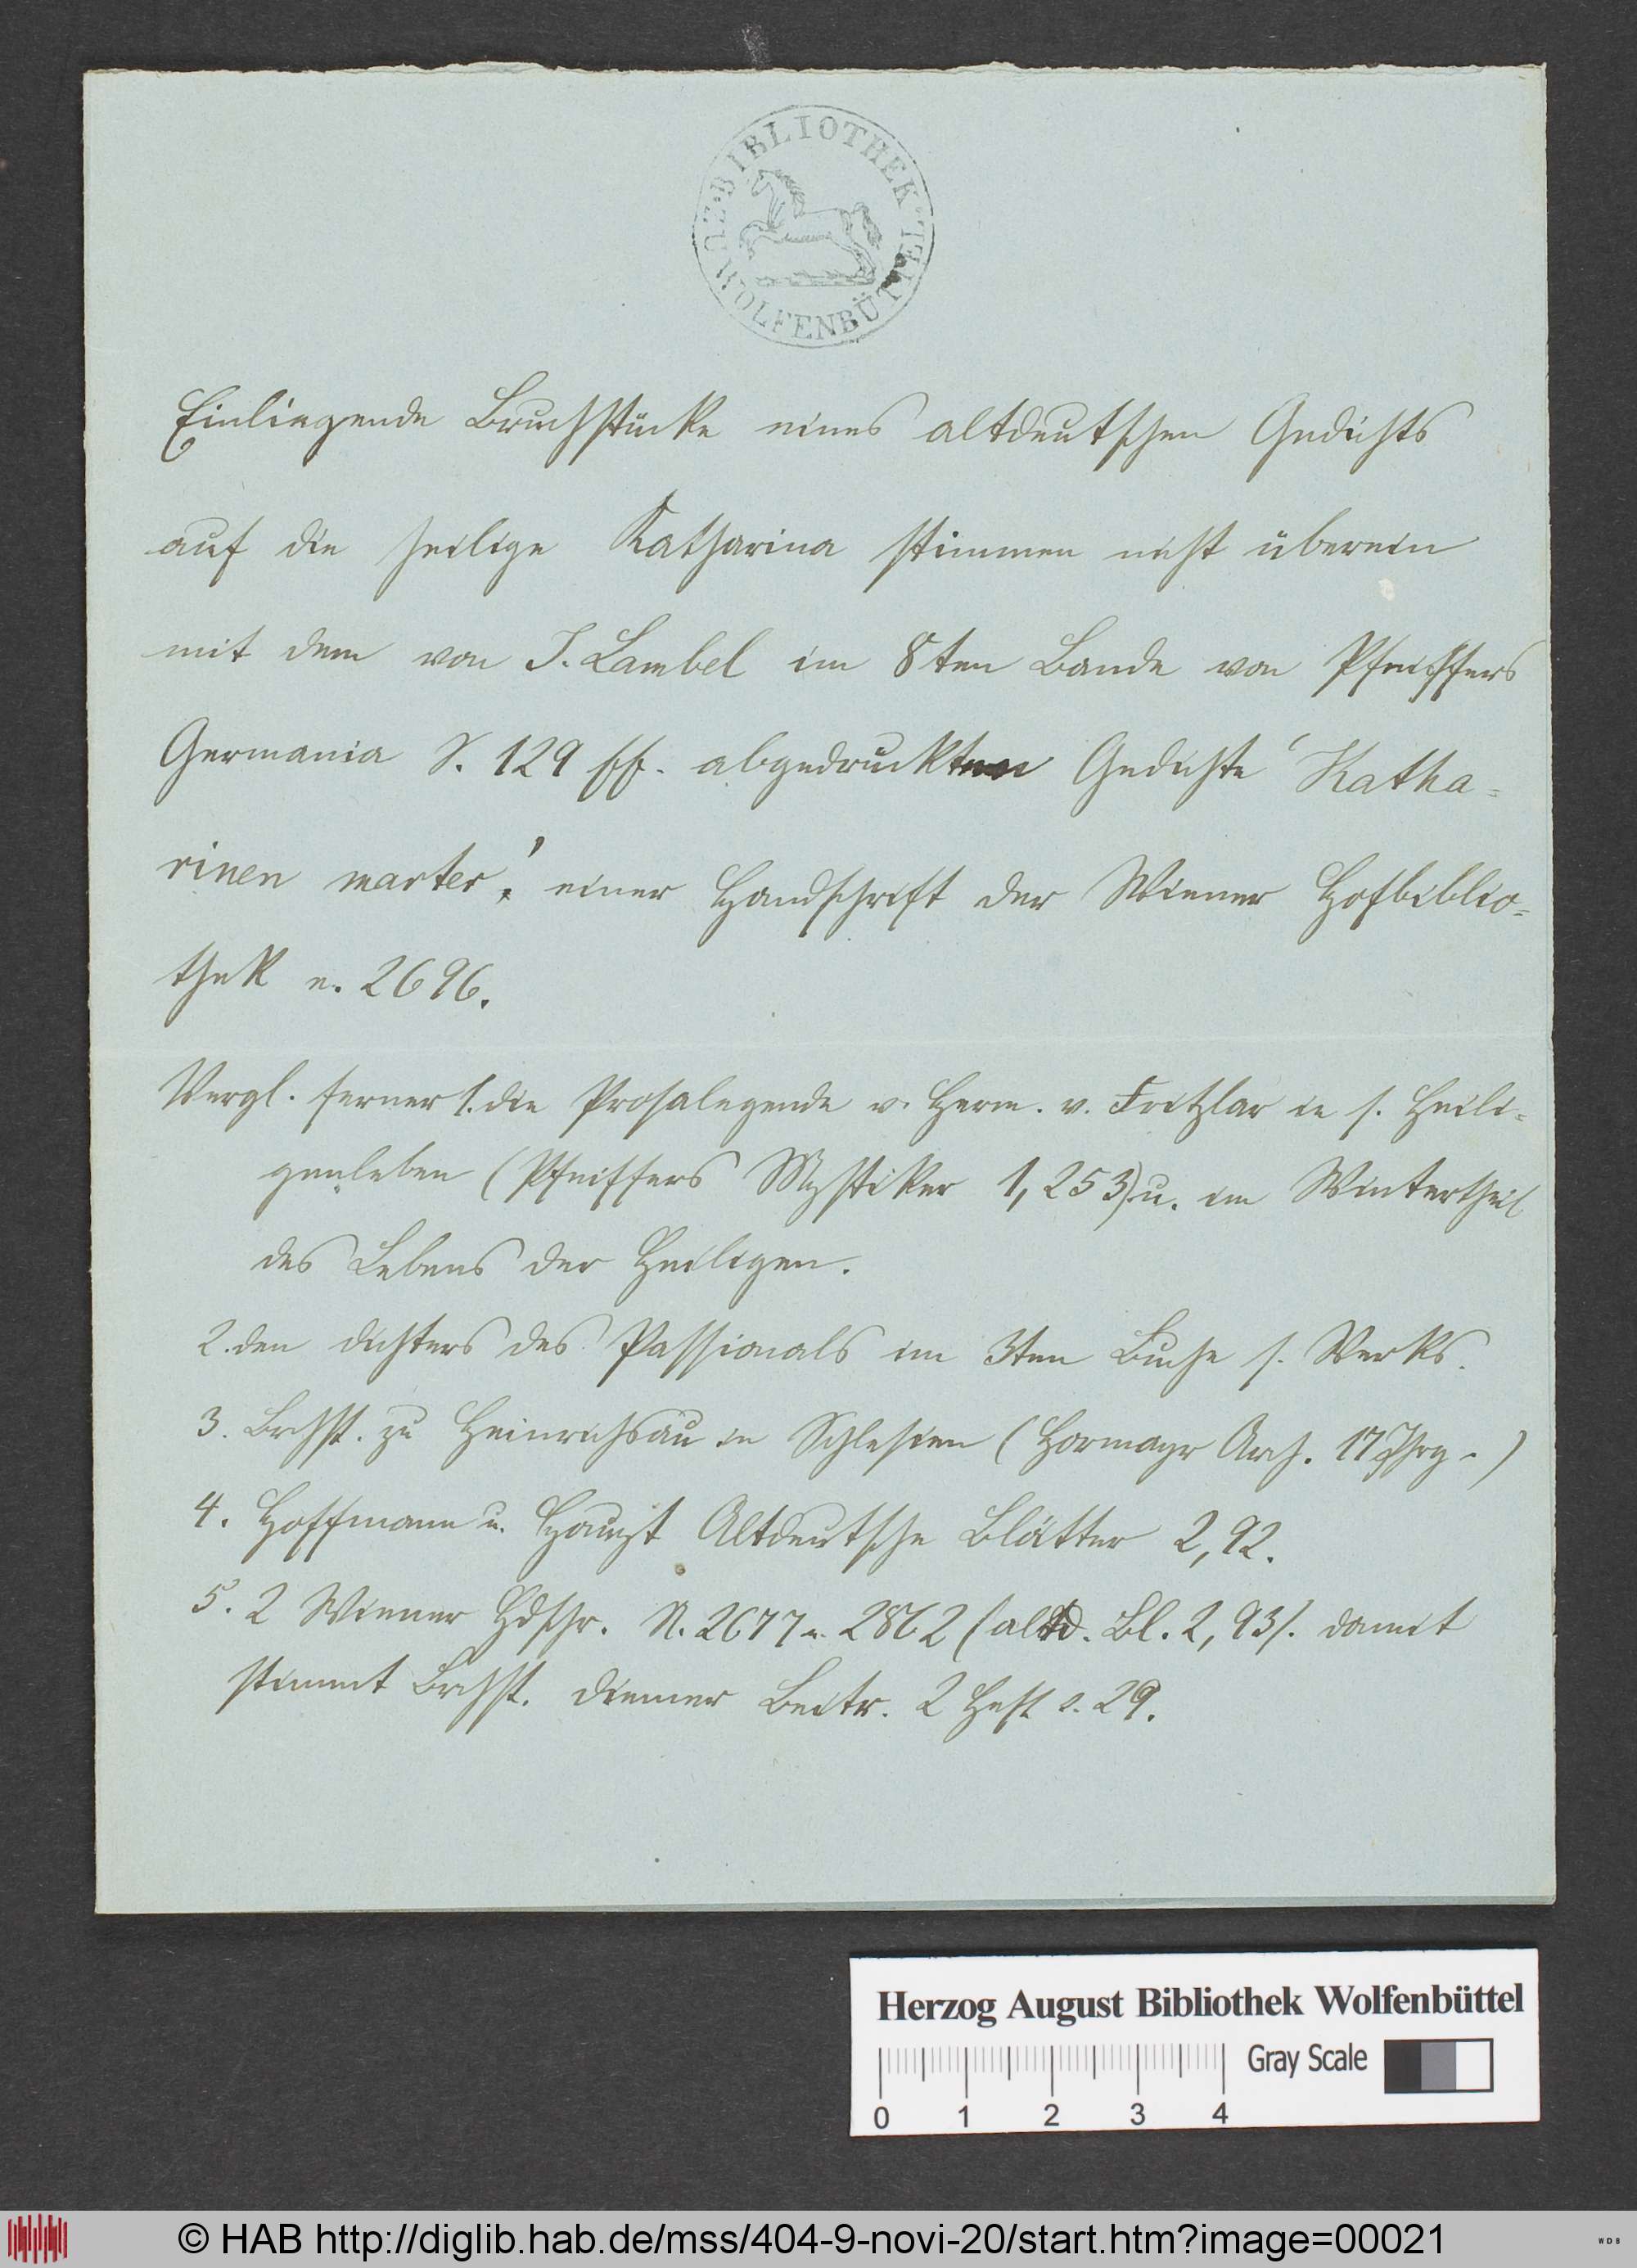 BIBLIOTHEK
WOLFENBÜTTEL
Einliegende Bruchstücke eines altdeutschen Gedichts
auf die heilige Katharina stimmen nicht überein
mit dem von J. Lambel im 8ten Bande von Pfeiffers
Germania S. 129 ff. abgedruckten Gedichte 'Katha=
rinen marter' einer Handschrift der Wiener Hofbiblio=
thek n. 2696.
Vergl. ferner 1. die Prosalegende v. Herm. v. Fritzlar in s. Heili=
genleben (Pfeiffers Mystiker 1, 253) u. im Wintertheil
des Lebens der Heiligen.
2. den dichters des Passionals im 3ten Buche s. Werks.
3. Brchst. zu Heinrichsau in Schlesien (Hormayr Arch. 17 Jhrg.)
4. Hoffmann u. Haupt Altdeutsche Blätter 2, 92.
5. 2 Wiener Hdschr. N. 2677 u. 2862 (altd. Bl. 2, 93). damit
stimmt Brchst. diemer Beitr. 2 Heft s. 29.
Herzog August Bibliothek Wolfenbüttel
Gray Scale
0 1 2 3 4
© HAB http://diglib.hab.de/mss/404-9-novi-20/start.htm?image=00021
WDB